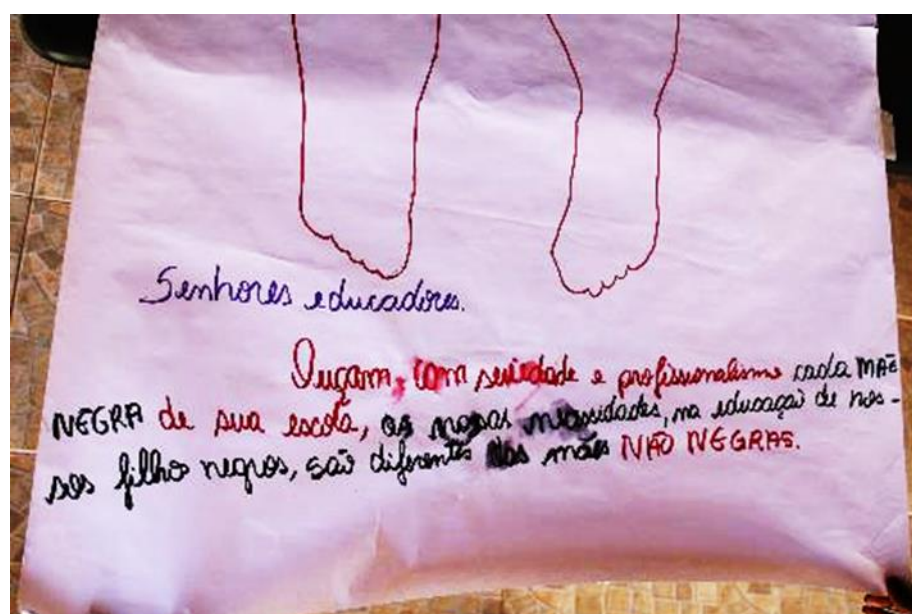 Senhores educadores.
Ouçam, com seriedade e profissionalismo cada MÃE
NEGRA de sua escola, as nossas necessidades, na educação de nos-
sos filho negros, são diferentes das mães NÃO NEGRAS.